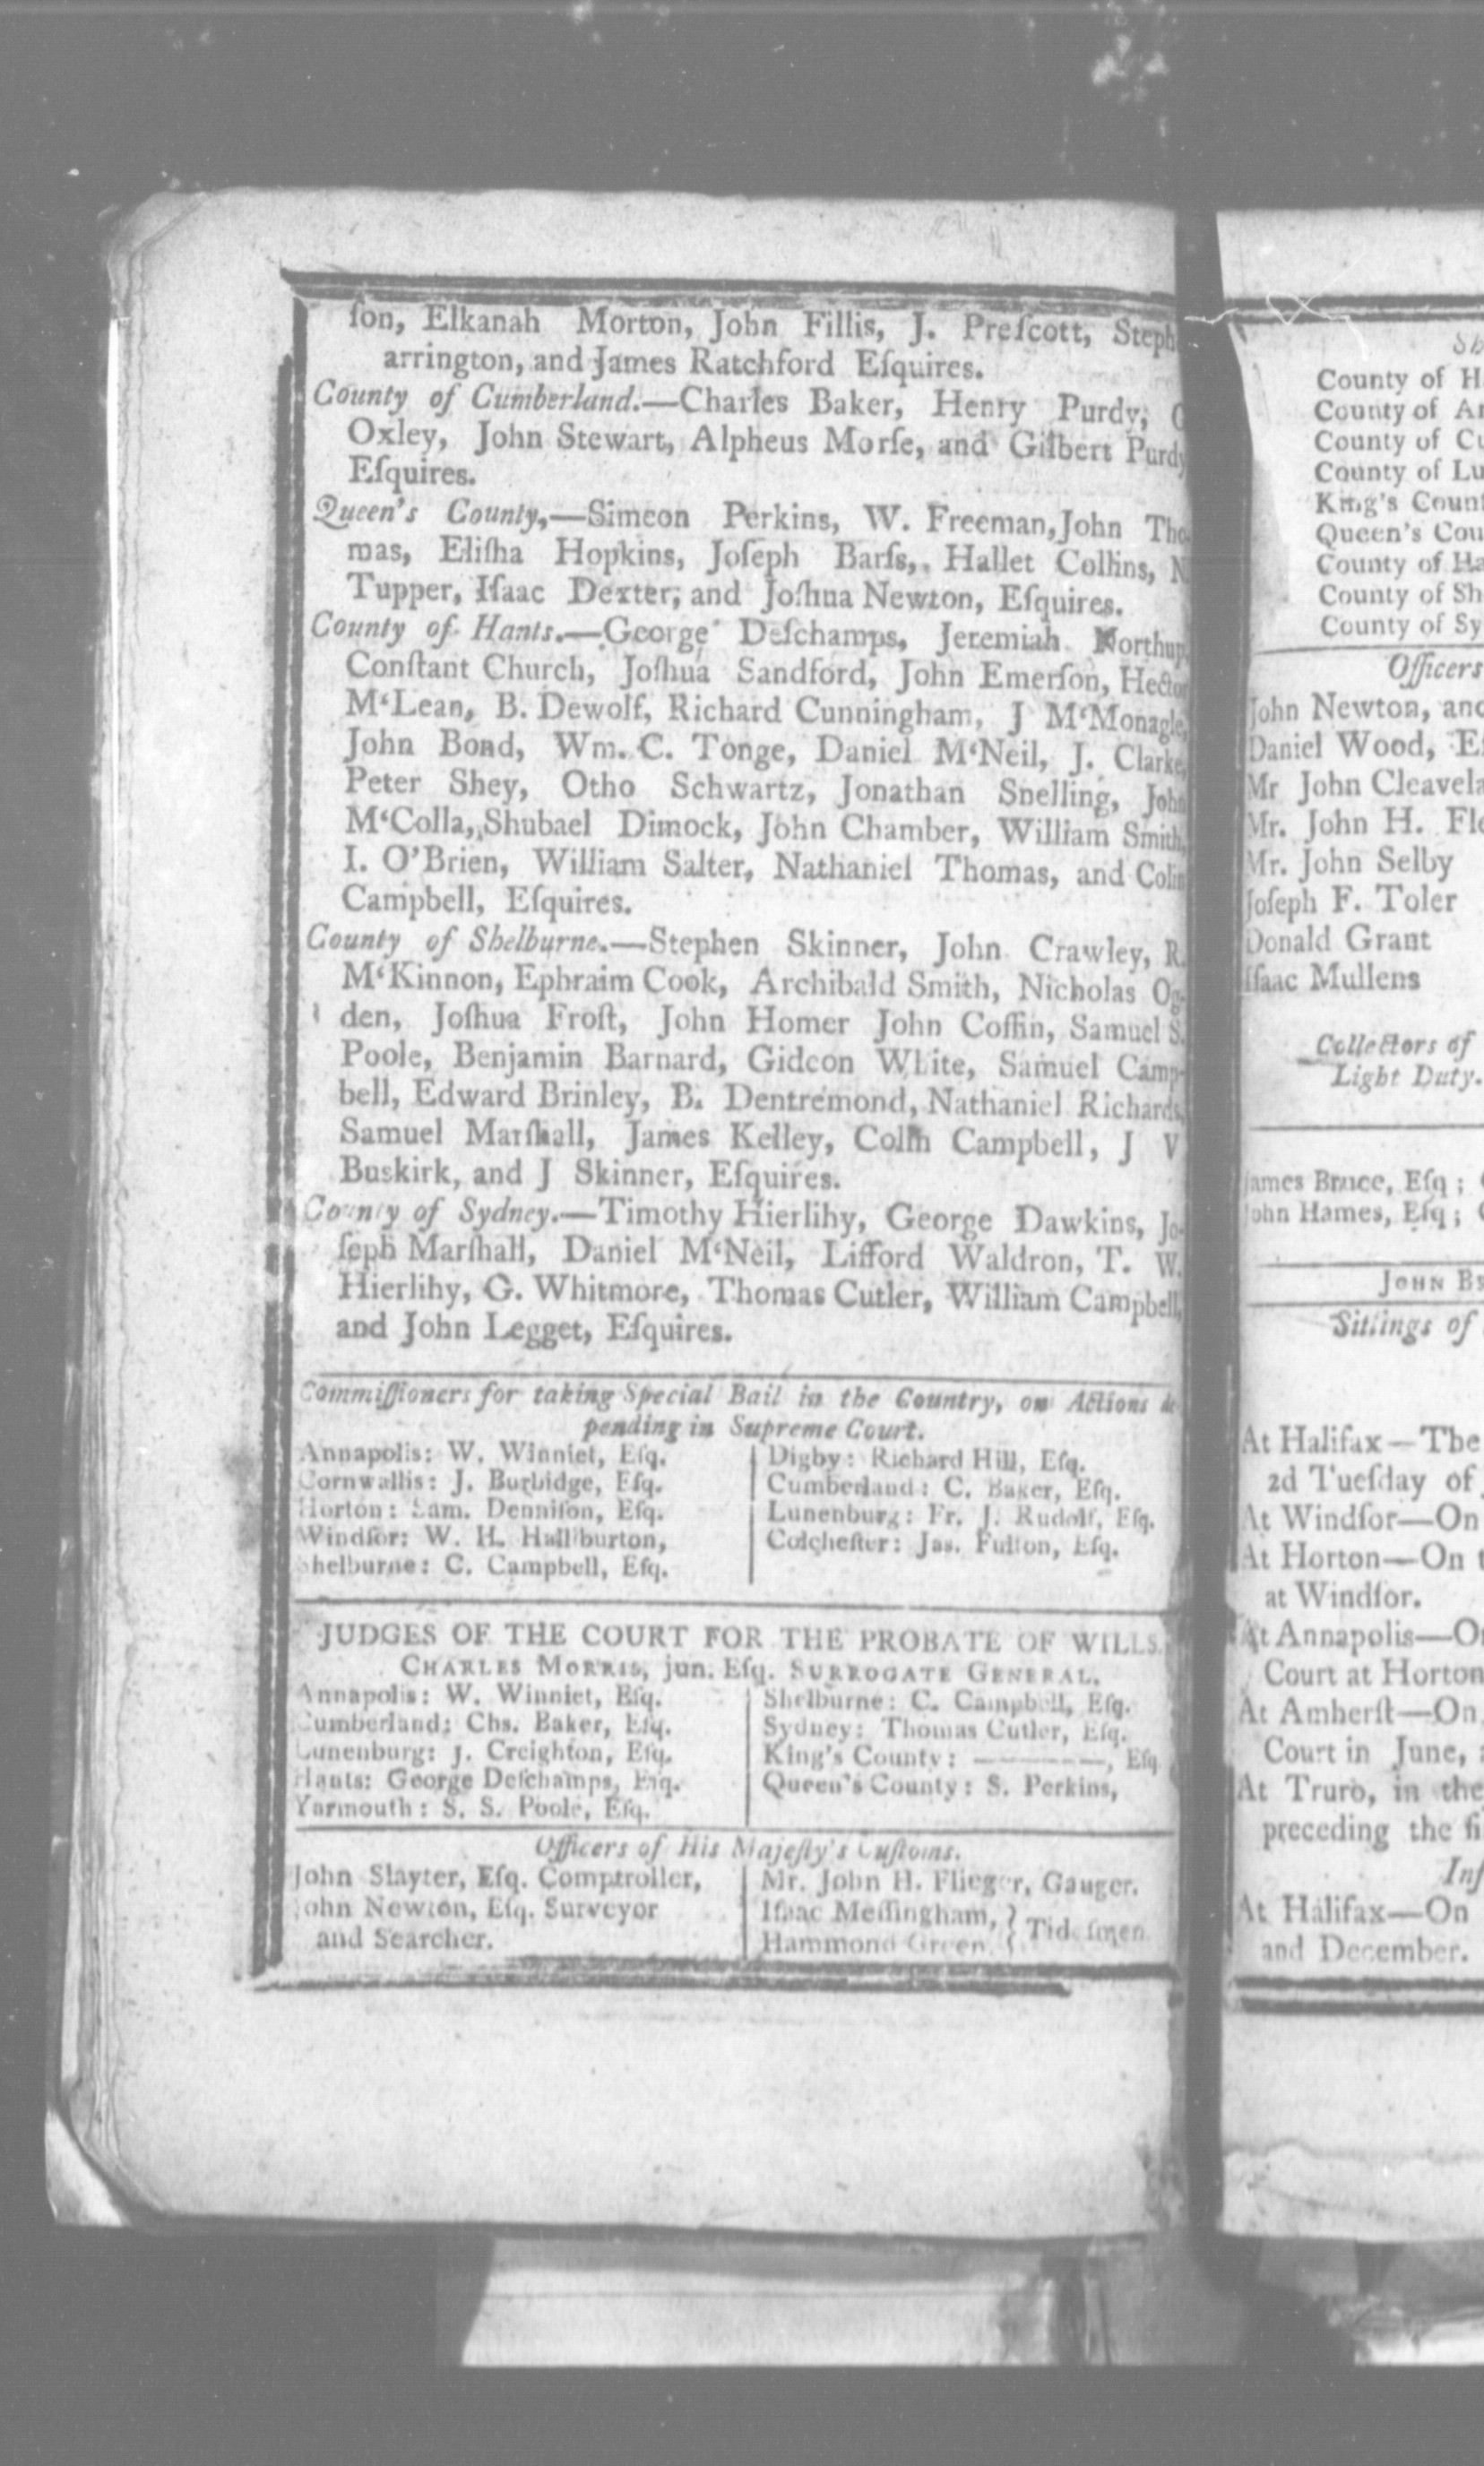 ſon, Elkanah Morton, John Fillis, J. Preſcott, Steph
arrington, and James Ratchford Eſquires.
County of Cumberland.—Charles Baker, Henry Purdy, C
Oxley, John Stewart, Alpheus Morſe, and Gilbert Purdy
Eſquires.
Queen's County,—Simeon Perkins, W. Freeman, John Tho-
mas, Eliſha Hopkins, Joſeph Barſs, Hallet Collins, N
Tupper, Iſaac Dexter, and Joſhua Newton, Eſquires.
County of Hants.—George Deſchamps, Jeremiah Northup,
Conſtant Church, Joſhua Sandford, John Emerſon, Hector
M‘Lean, B. Dewolf, Richard Cunningham, J M‘Monagle,
John Bond, Wm. C. Tonge, Daniel M‘Neil, J. Clarke,
Peter Shey, Otho Schwartz, Jonathan Snelling, John
M‘Colla, Shubael Dimock, John Chamber, William Smith,
I. O'Brien, William Salter, Nathaniel Thomas, and Colin
Campbell, Eſquires.
County of Shelburne.—Stephen Skinner, John Crawley, R.
M‘Kinnon, Ephraim Cook, Archibald Smith, Nicholas Og-
den, Joſhua Froſt, John Homer John Coffin, Samuel S.
Poole, Benjamin Barnard, Gideon White, Samuel Camp-
bell, Edward Brinley, B. Dentremond, Nathaniel Richards,
Samuel Marſhall, James Kelley, Colin Campbell, J V
Buskirk, and J Skinner, Eſquires.
County of Sydney.—Timothy Hierlihy, George Dawkins, Jo-
ſeph Marſhall, Daniel M‘Neil, Lifford Waldron, T. W.
Hierlihy, G. Whitmore, Thomas Cutler, William Campbell,
and John Legget, Eſquires.
Commiſſioners for taking Special Bail in the Country, on Actions de
pending in Supreme Court.
Annapolis: W. Winniet, Eſq.
Cornwallis: J. Burbidge, Eſq.
Horton: Sam. Denniſon, Eſq.
Windſor: W. H. Halliburton,
Shelburne: C. Campbell, Eſq.
Digby: Richard Hill, Eſq.
Cumberland: C. Baker, Eſq.
Lunenburg: Fr. J. Rudolf, Eſq.
Colcheſter: Jas. Fulton, Eſq.
JUDGES OF THE COURT FOR THE PROBATE OF WILLS.
CHARLES MORRIS, jun. Eſq. SURROGATE GENERAL.
Annapolis: W. Winniet, Eſq.
Cumberland: Chs. Baker, Eſq.
Lunenburg: J. Creighton, Eſq.
Hants: George Deſchamps, Eſq.
Yarmouth: S. S. Poole, Eſq.
Shelburne: C. Campbell, Eſq.
Sydney: Thomas Cutler, Eſq.
King's County: ————, Eſq
Queen's County: S. Perkins,
Officers of His Majeſty's Cuſtoms.
John Slayter, Eſq. Comptroller,
John Newton, Eſq. Surveyor
and Searcher.
Mr. John H. Flieger, Gauger.
Iſaac Meſſingham, } Tideſmen
Hammond Green }
County of H
County of An
County of Cu
County of Lu
King's Count
Queen's Cou
County of Ha
County of Sh
County of Sy
Officers
John Newton, and
Daniel Wood, Eſ
Mr John Cleavela
Mr. John H. Fle
Mr. John Selby
Joſeph F. Toler
Donald Grant
Iſaac Mullens
Collectors of
Light Duty.
James Bruce, Eſq;
John Hames, Eſq;
JOHN BE
Sittings of
At Halifax—The
2d Tueſday of
At Windſor—On
At Horton—On t
at Windſor.
At Annapolis—On
Court at Horton
At Amherſt—On
Court in June,
At Truro, in the
preceding the fi
Inf
At Halifax—On
and December.